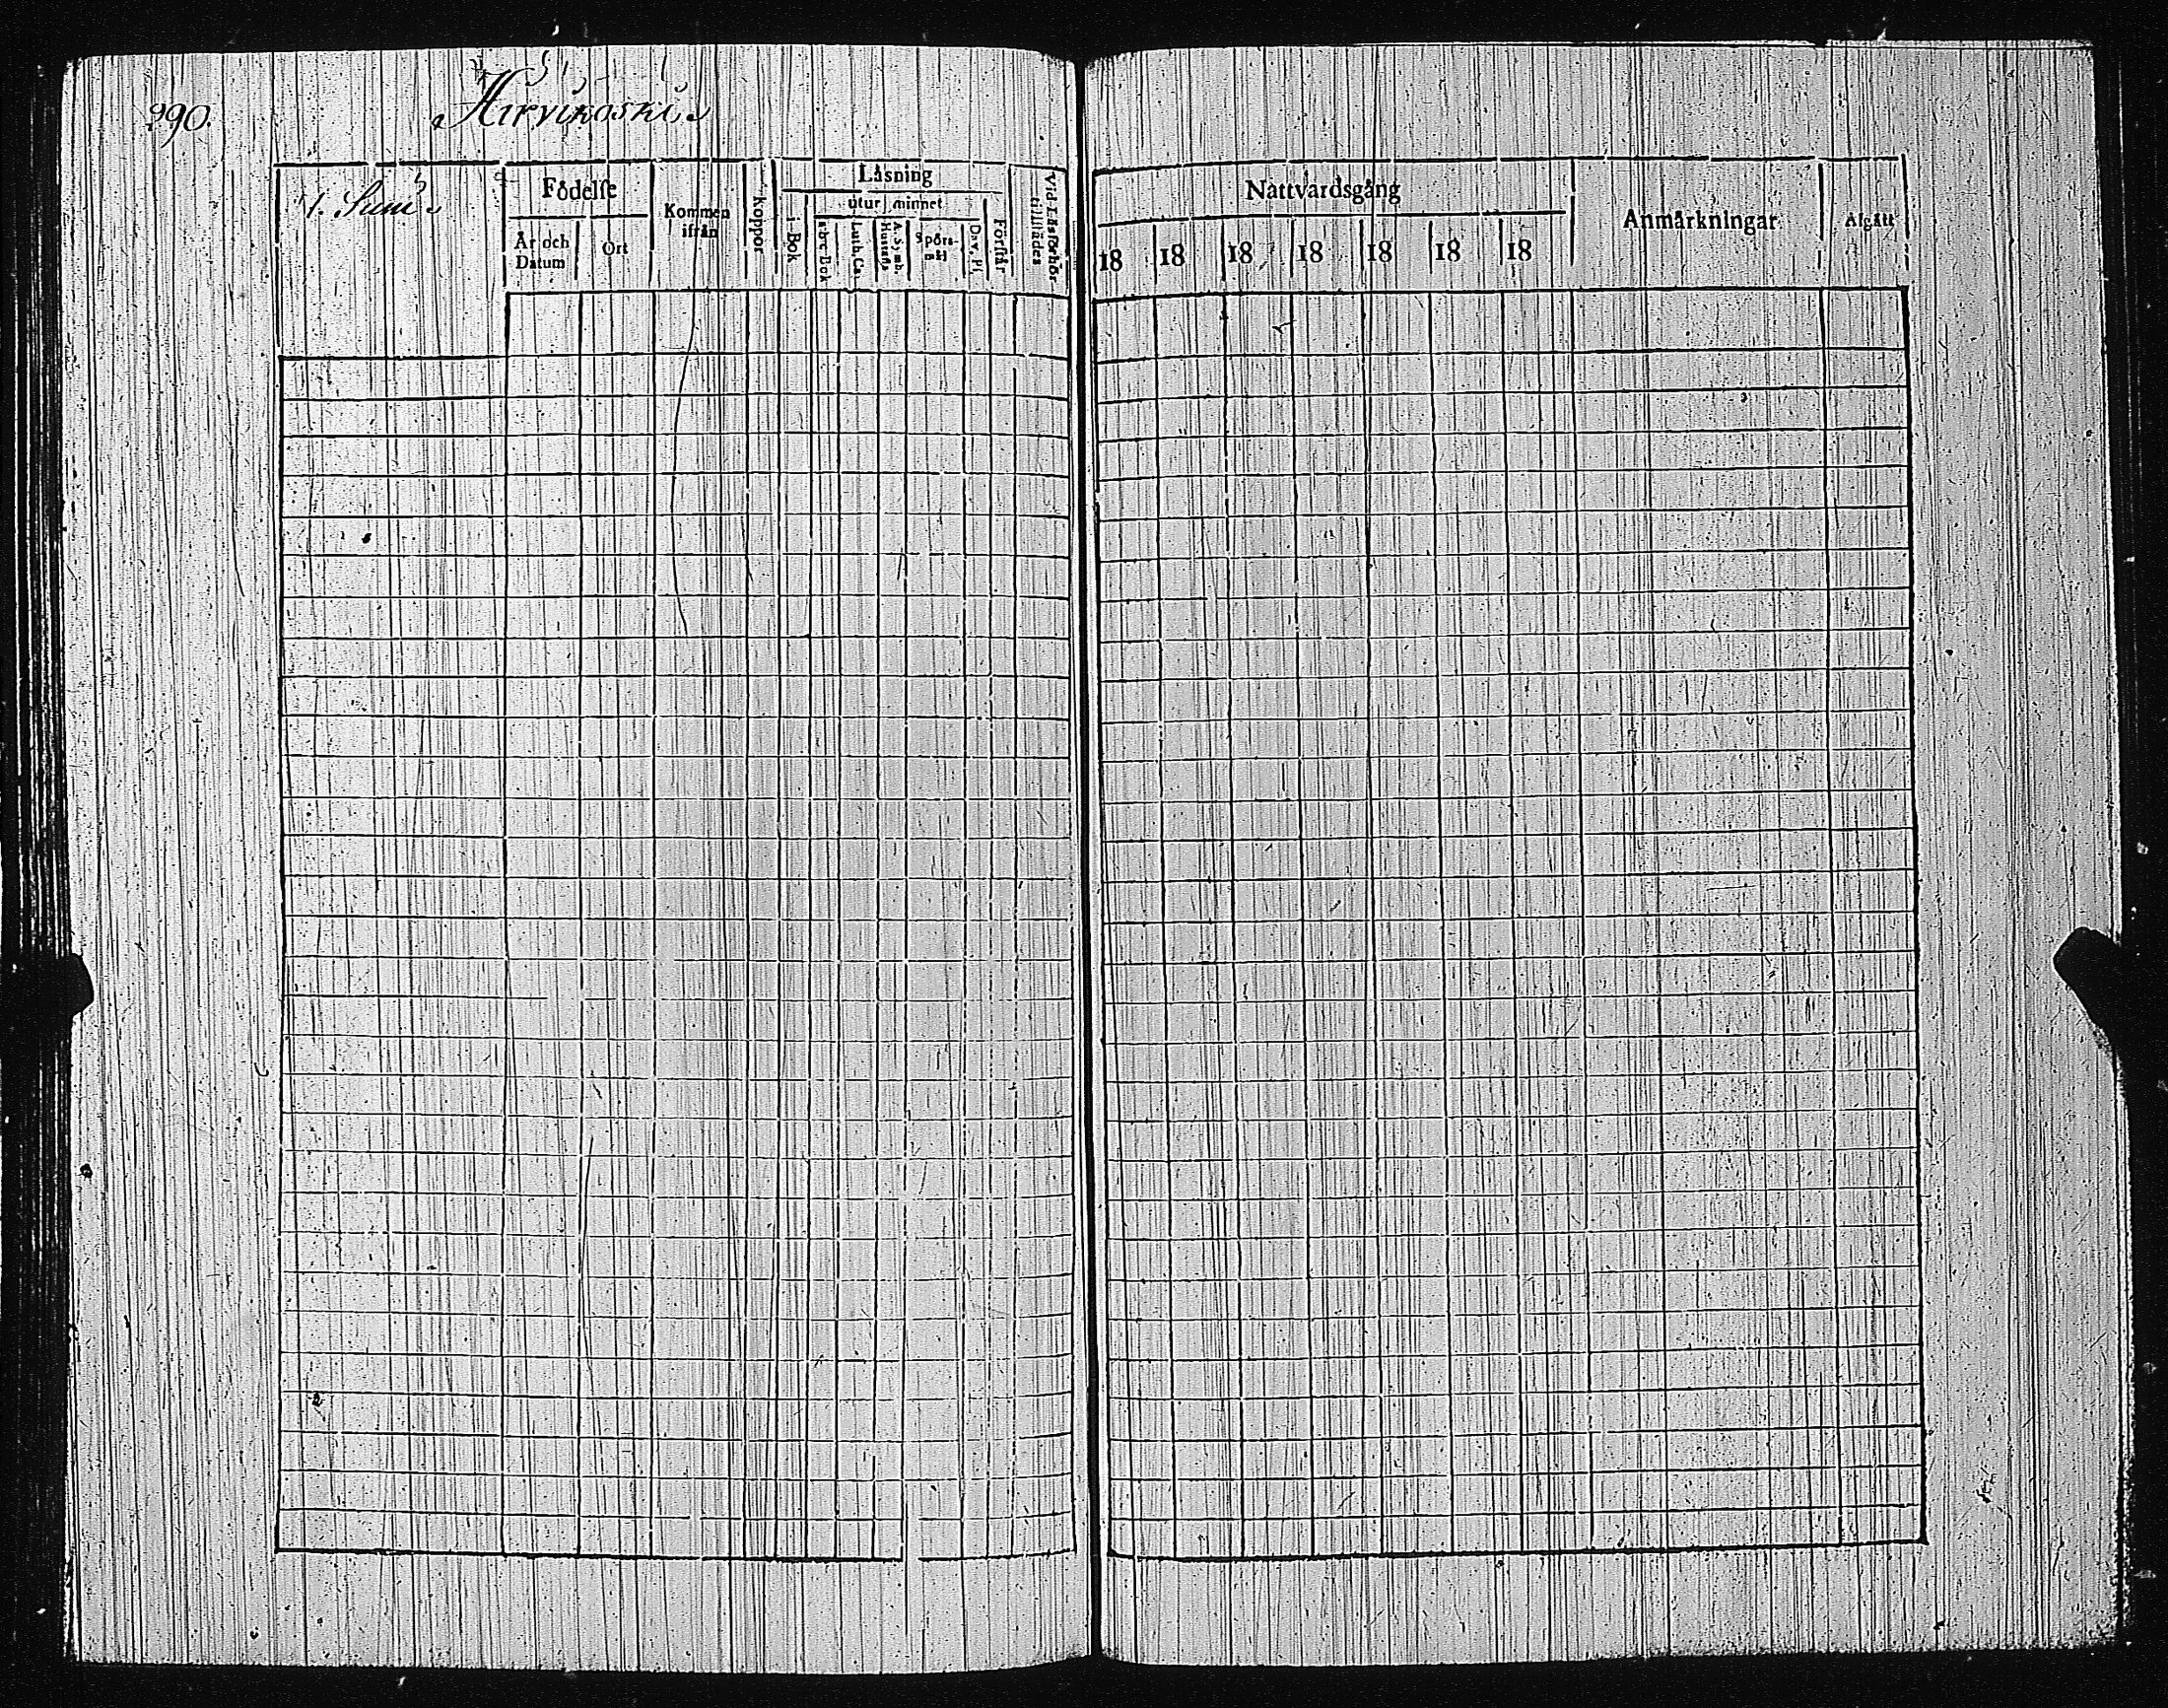 290.
Hirvikoski
1. Suni
Födelse
År och Datum
Ort
Kommen ifrån
Koppor
Läsning
i Bok
utur minnet
abc-Bok
Luth. Ca.
A. Symb. Hustafla
Spörsmål
Dav. Ps
Förstår
Vid Läsförhör tillstädes
Nattvardsgång
18 18 18 18 18 18 18
Anmärkningar
Afgått